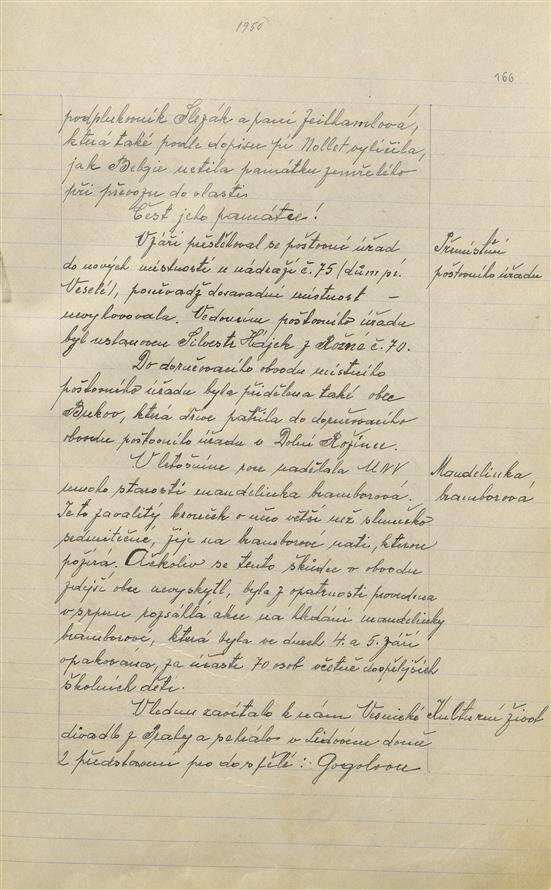 1950
166
podplukovník Slezák a paní Zeithamlová,
která také podle dopisu pí Nollet vylíčila,
jak Belgie uctila památku zemřelého
při převozu do vlasti.
Čest jeho památce!
V září přestěhoval se poštovní úřad
Přemístění
do nových místností u nádraží č. 75 (dům pí.
poštovního úřadu
Veselé), poněvadž dosavadní místnost –
nevyhovovala. Vedoucím poštovního úřadu
byl ustanoven Silvestr Hájek z Rožné č. 70.
Do doručovacího obvodu místního
poštovního úřadu byla přidělena také obec
Bukov, která dříve patřila do doručovacího
obvodu poštovního úřadu v Dolní Rožínce.
V letošním roce nadělala MNV
Mandelinka
mnoho starostí mandelinka bramborová.
bramborová
Je to zavalitý brouček o něco větší než slunéčko
sedmitečné, žije na bramborové nati, kterou
požírá. Ačkoliv se tento škůdce v obvodu
zdejší obce nevyskytl, byla z opatrnosti provedena
v srpnu rozsáhlá akce na hledání mandelinky
bramborové, která byla ve dnech 4. a 5. září
opakována, za účasti 70 osob včetně dospělejších
školních dětí.
V lednu zavítalo k nám Vesnické
Kulturní život
divadlo z Prahy a sehrálo v Lidovém domě
2 představení pro dospělé: Gogolovu